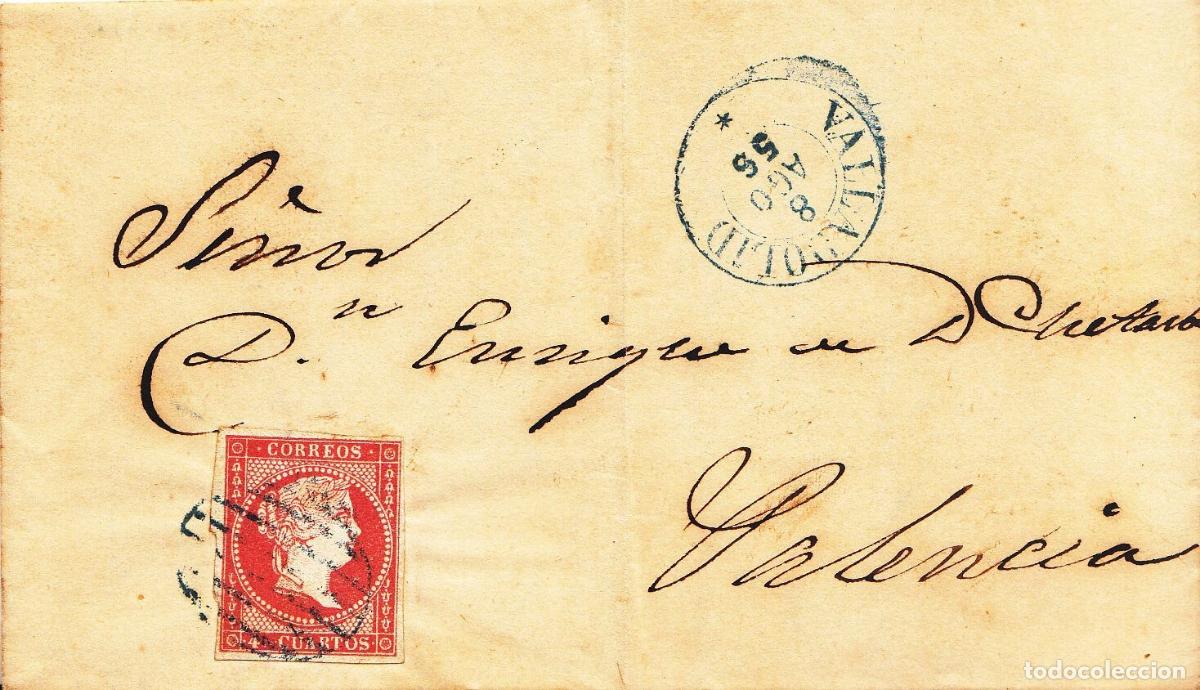 VALLADOLID
8
AGO
5S
Señor
D.n Enrique de
Valencia
CORREOS
4 CUARTOS
todocoleccion